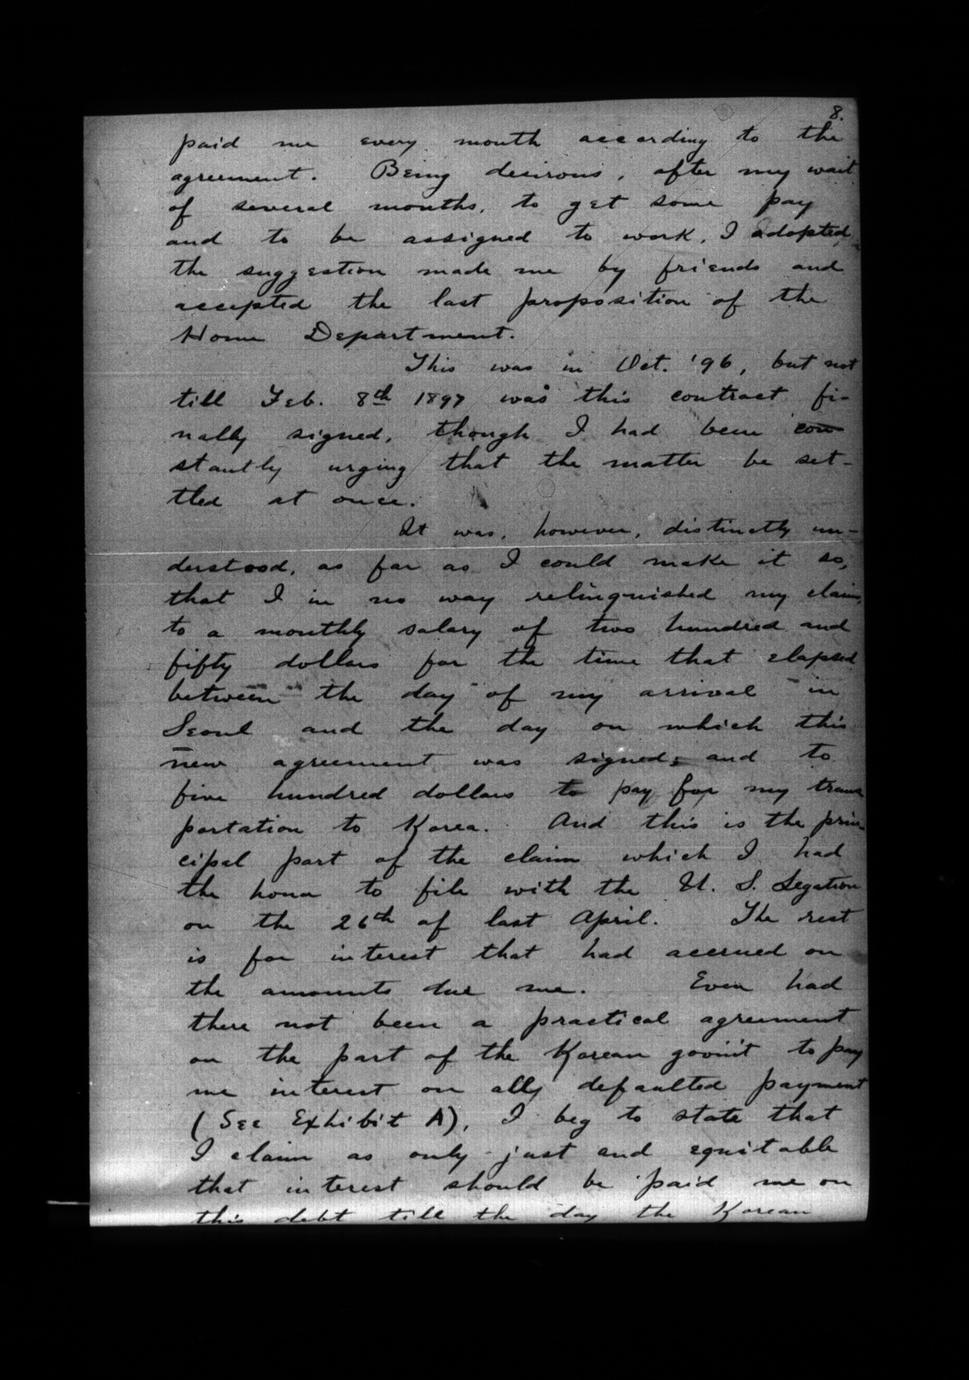 8.
paid me every month according to the
agreement. Being desirous, after my wait
of several months, to get some pay
and to be assigned to work, I adopted
the suggestion made me by friends and
accepted the last proposition of the
Home Department.
This was in Oct. '96, but not
till Feb. 8th 1897 was this contract fi-
nally signed, though I had been con
stantly urging that the matter be set-
tled at once.
It was, however, distinctly un-
derstood, as far as I could make it so,
that I in no way relinquished my claim
to a monthly salary of two hundred and
fifty dollars for the time that elapsed
between the day of my arrival in
Seoul and the day on which this
new agreement was signed; and to
five hundred dollars to pay for my trans
portation to Korea. And this is the prin
cipal part of the claim which I had
the honor to file with the U. S. Legation
on the 26th of last April. The rest
is for interest that had accrued on
the amounts due me. Even had
there not been a practical agreement
on the part of the Korean gov'n't to pay
me interest on all defaulted payment
(See Exhibit A), I beg to state that
I claim as only just and equitable
that interest should be paid me on
this debt till the day the Korean